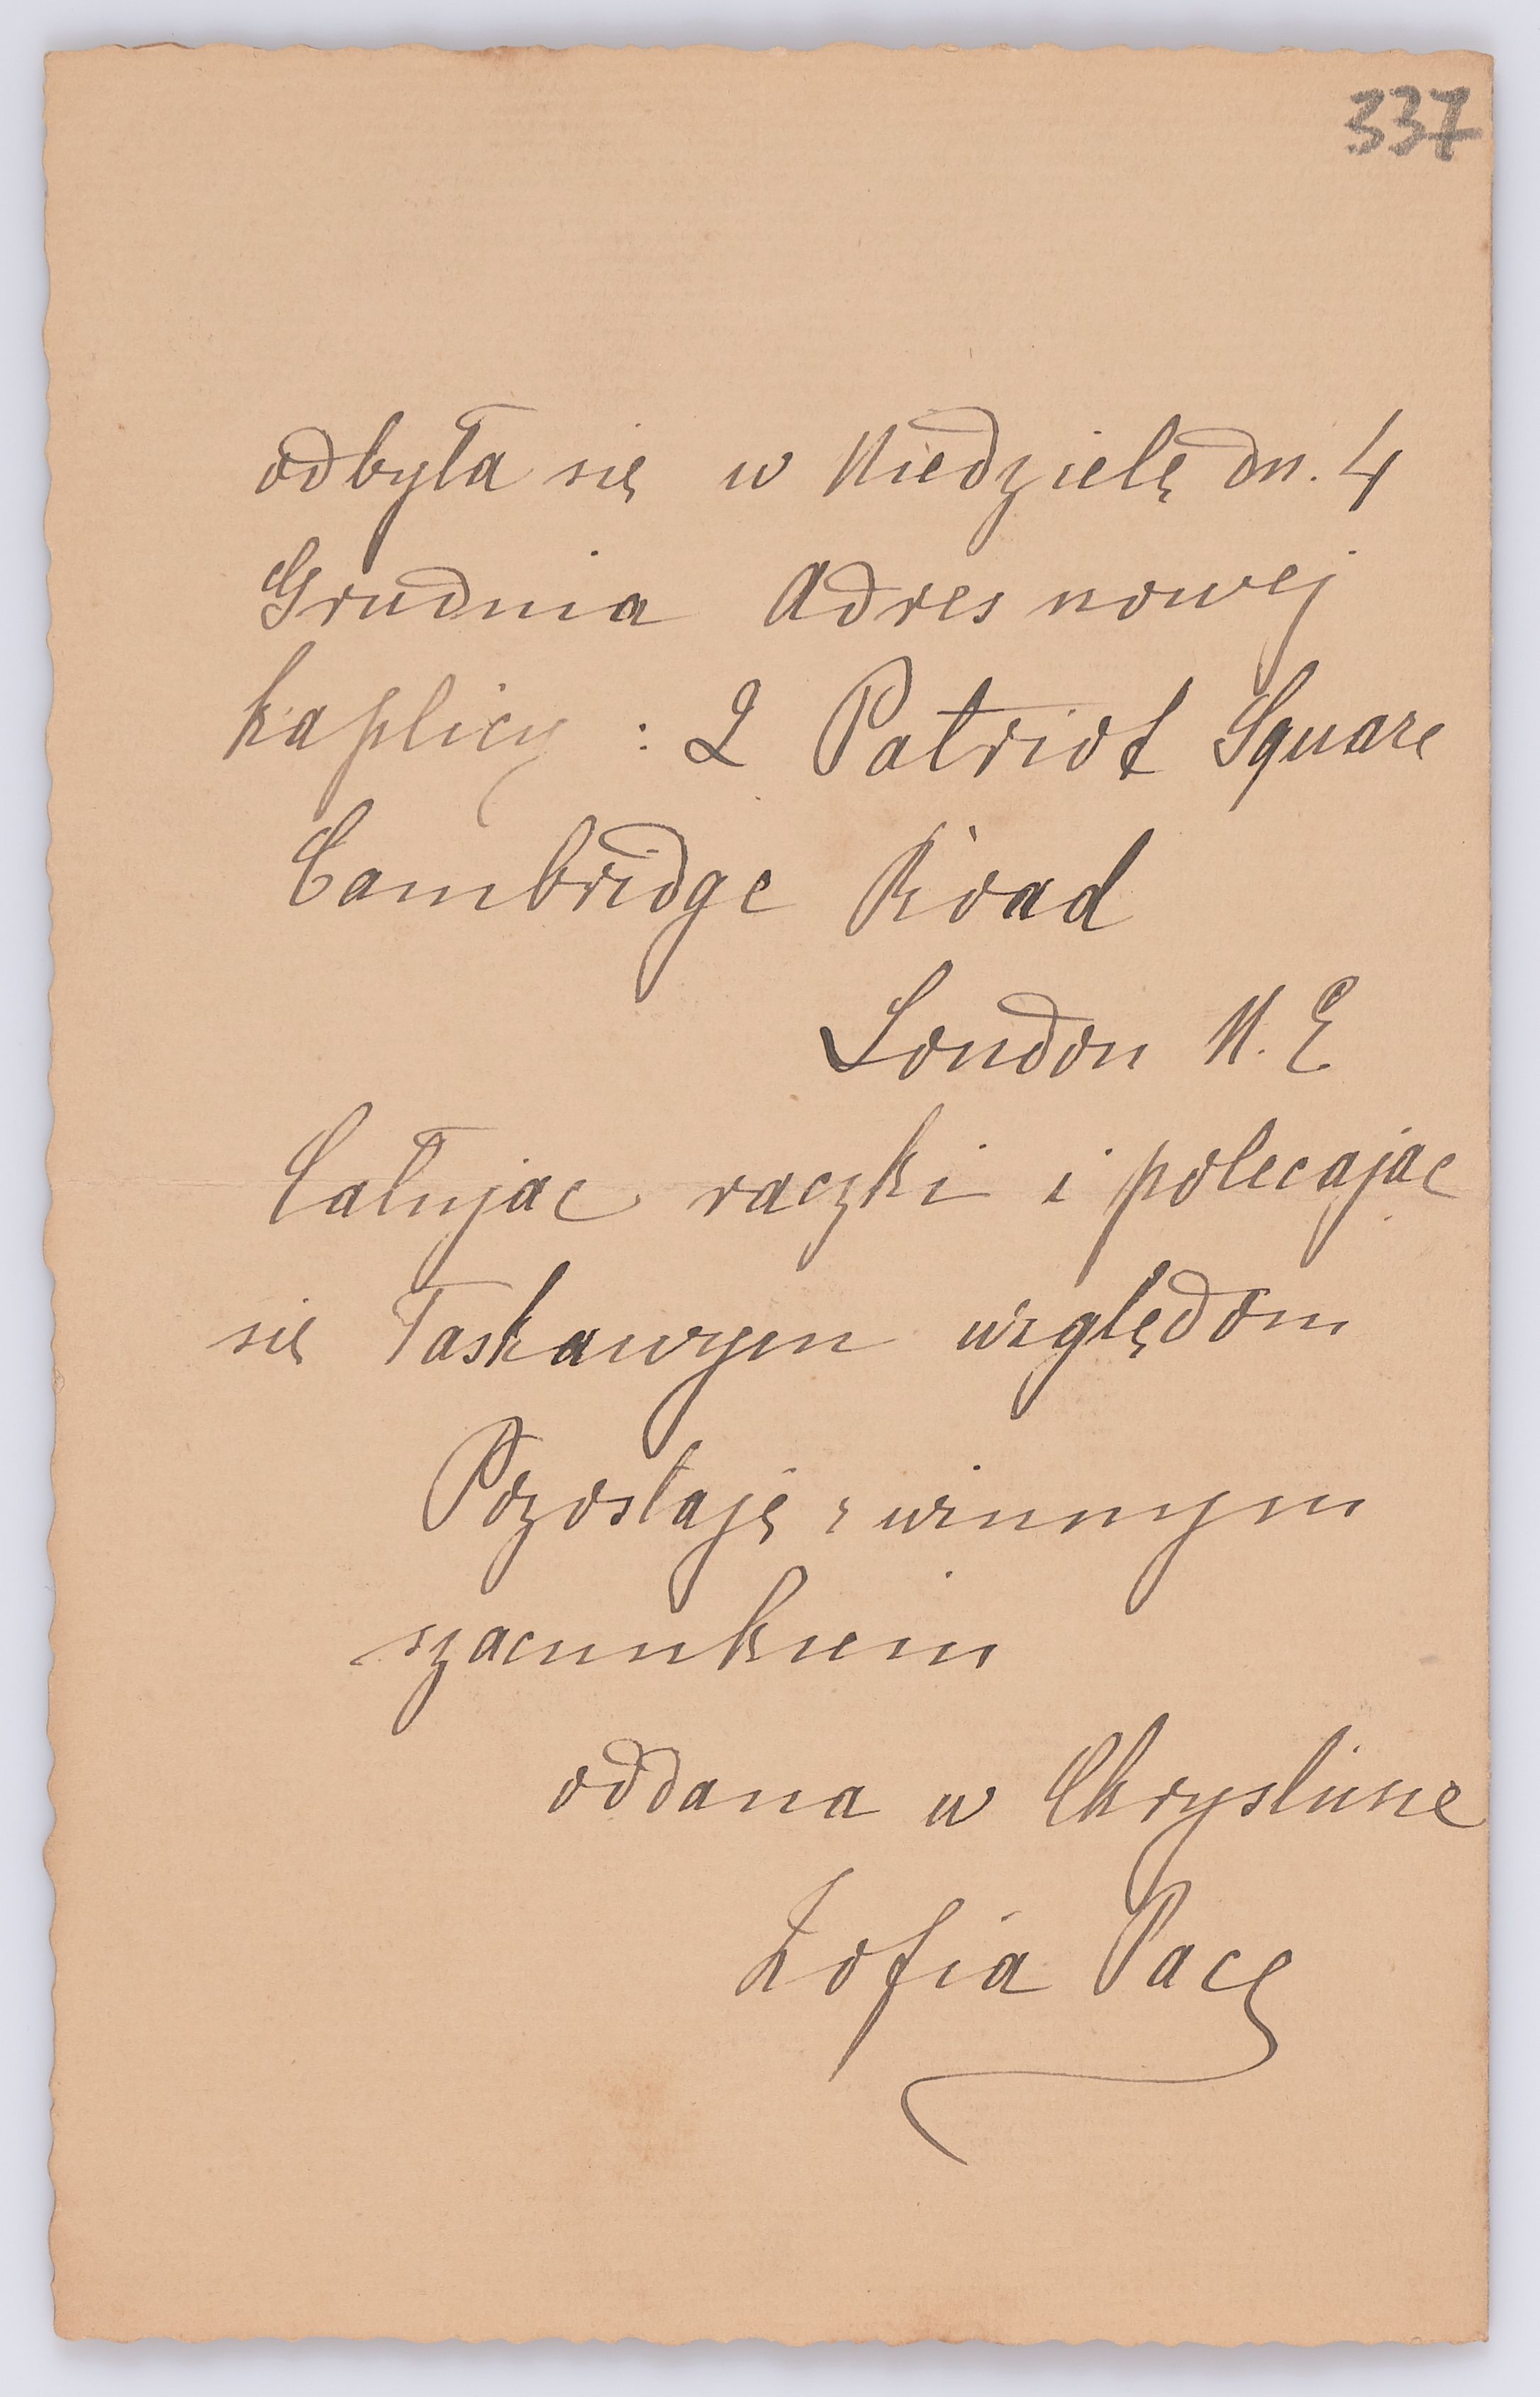 337
odbyła się w Niedzielę dn. 4
Grudnia Adres nowej
kaplicy : 2 Patriot Square
Cambridge Road
London N. E
Całujac raczki i polecajac
się łaskawym względom
Pozostaję z winnym
szacunkiem
oddana w Chrystusie
Zofia Pace